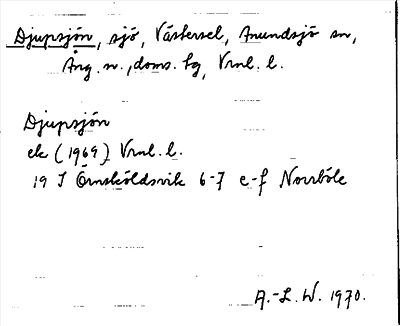 Djupsjön, sjö, Västersel, Anundsjö sn,
Ång. n., doms. lg, Vrnl. l.
Djupsjön
ek (1969) Vrnl. l.
19 J Örnsköldsvik 6-7 e-f Norrböle
A.-L. W. 1970.